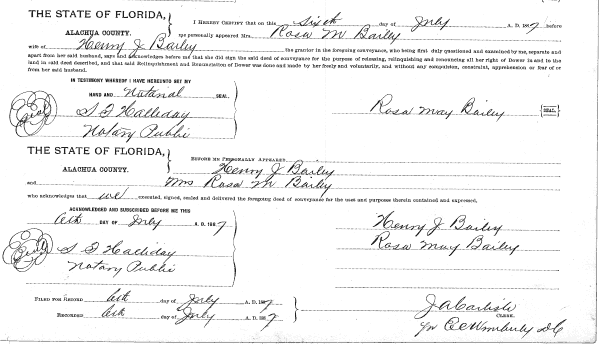 THE STATE OF FLORIDA,
ALACHUA COUNTY.
I HEREBY CERTIFY that on this sixth day of July A. D. 1887 before
me personally appeared Mrs Rosa M Bailey
wife of Henry J. Bailey the grantor in the foregoing conveyance, who being first duly questioned and examined by me, separate and
apart from her said husband, says and acknowledges before me that she did sign the said deed of conveyance for the purpose of releasing, relinquishing and renouncing all her right of Dower in and to the
land in said deed described, and that said Relinquishment and Renunciation of Dower was done and made by her freely and voluntarily, and without any compulsion, constraint, apprehension or fear of or
from her said husband.
IN TESTIMONY WHEREOF I HAVE HEREUNTO SET MY
HAND AND Notarial SEAL.
S. J. Halliday
Notary Public
Rosa May Bailey SEAL.
THE STATE OF FLORIDA,
ALACHUA COUNTY.
BEFORE ME PERSONALLY APPEARED
Henry J Bailey
and Mrs Rosa M Bailey
who acknowledges that we executed, signed, sealed and delivered the foregoing deed of conveyance for the uses and purposes therein contained and expressed,
ACKNOWLEDGED AND SUBSCRIBED BEFORE ME THIS
6th DAY OF July A. D. 1887
S. J. Halliday
Notary Public
Henry J Bailey
Rosa May Bailey
FILED FOR RECORD 6th day of July A. D. 1887
RECORDED 6th day of July A. D. 1887
J A Carlisle
CLERK.
pr C C Wimberly D C